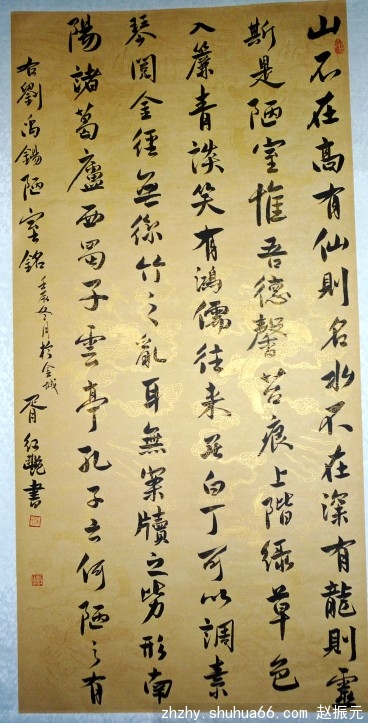 山不在高有仙則名水不在深有龍則靈
斯是陋室惟吾德馨苔痕上階緑草色
入簾青談笑有鴻儒往来無白丁可以調素
琴閲金經無絲竹之亂耳無案牘之勞形南
陽諸葛廬西蜀子雲亭孔子云何陋之有
右劉禹錫陋室銘 冬月於金城 胥红艷書
zhzhy.shuhua66.com 赵振元